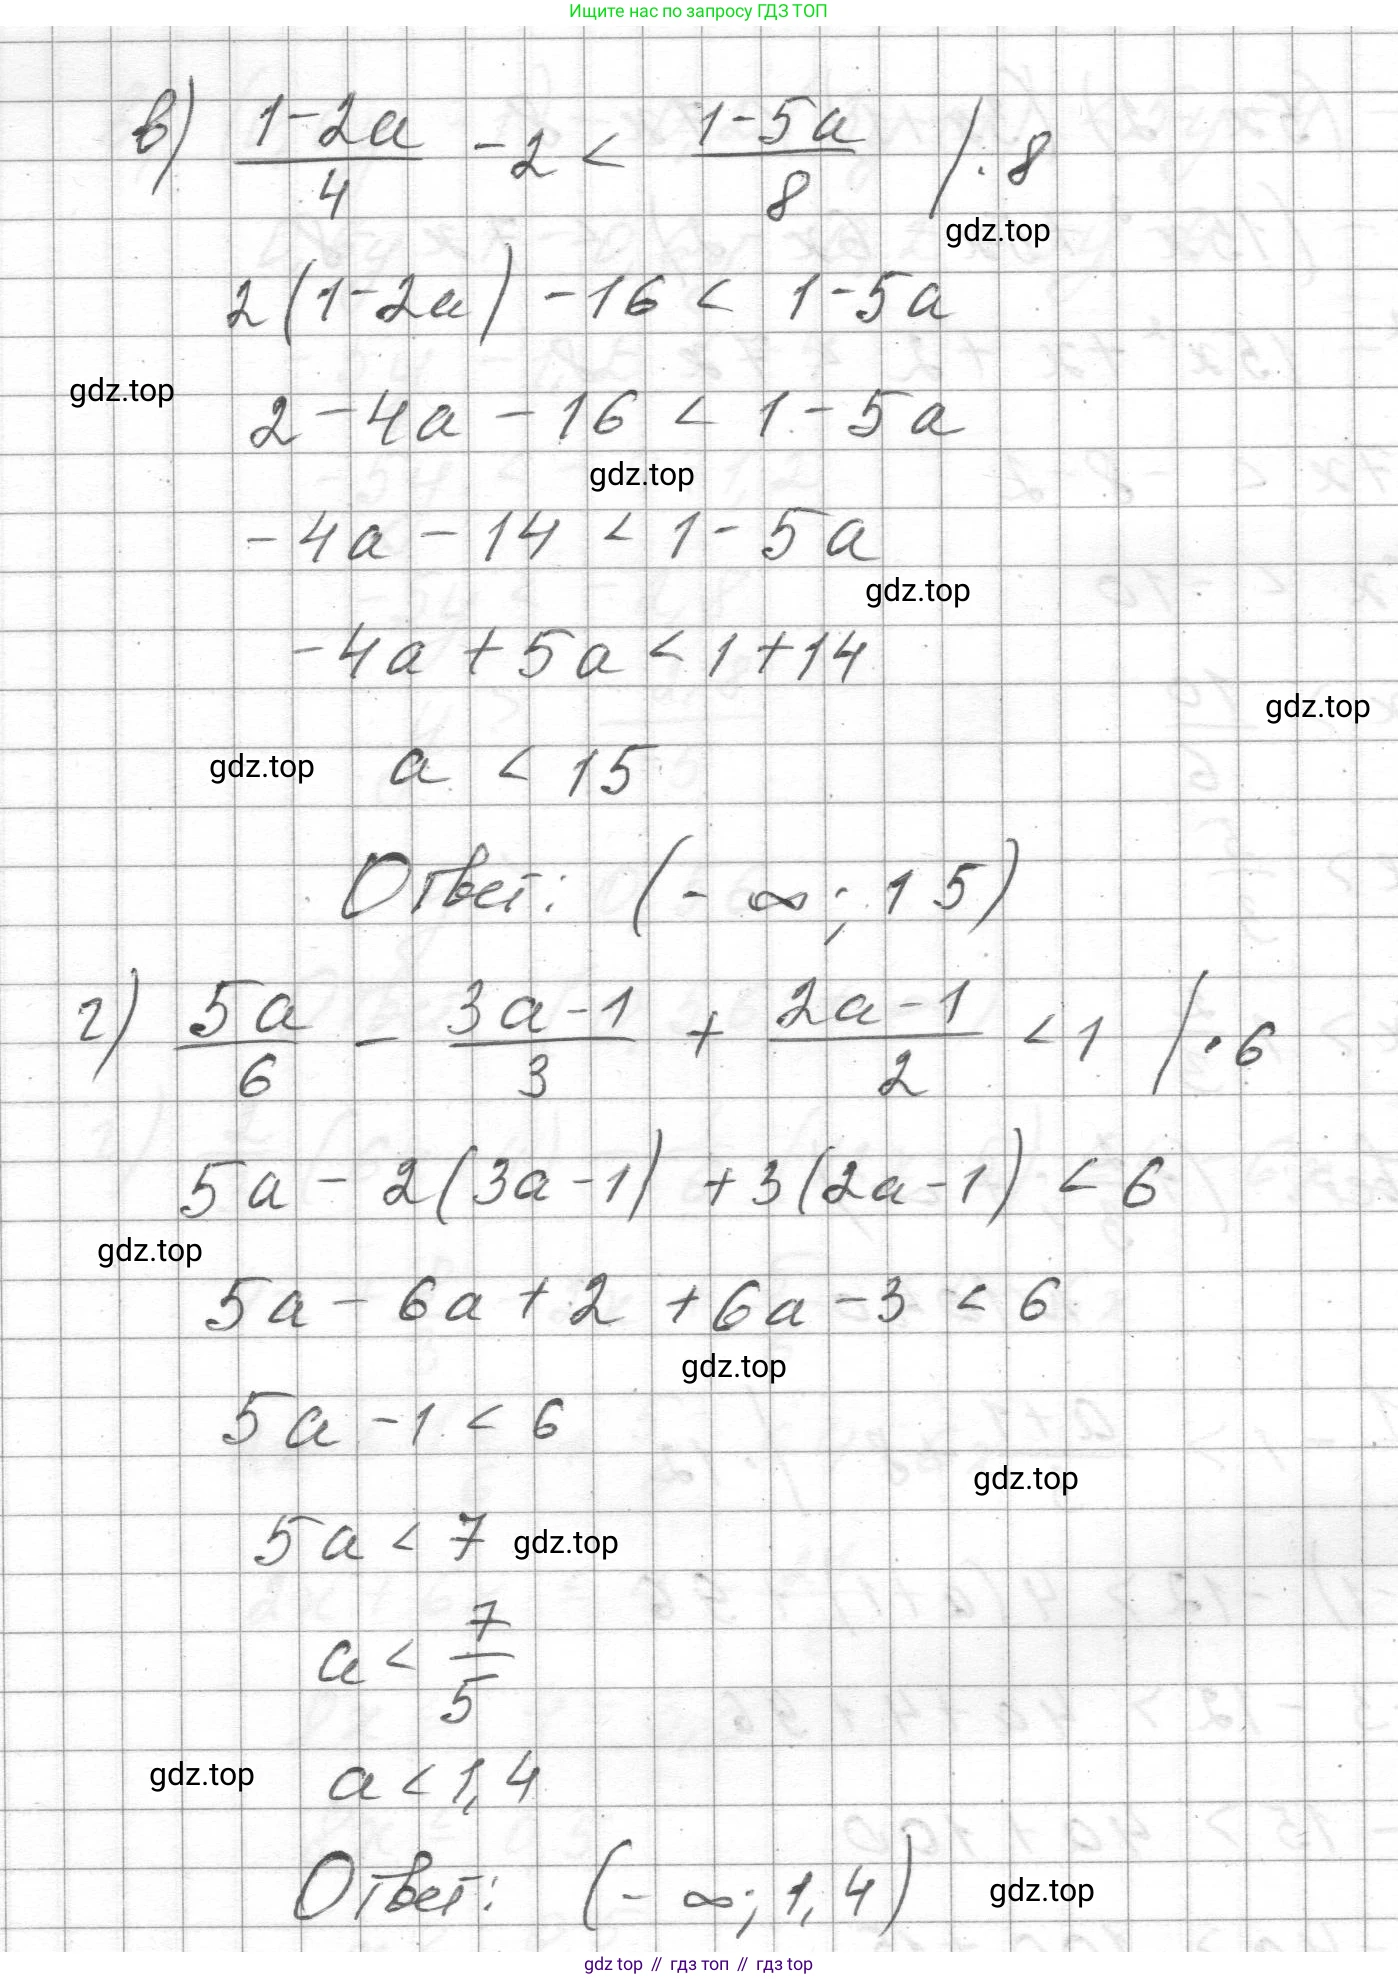 Ищите нас по запросу ГДЗ ТОП
в) (1-2a)/4 -2 < (1-5a)/8 /·8
gdz.top
2(1-2a) -16 < 1-5a
gdz.top
2-4a-16 < 1-5a
gdz.top
-4a-14 < 1-5a
gdz.top
-4a+5a<1+14
gdz.top
gdz.top a < 15
Ответ: (-∞; 15)
г) 5a/6 - (3a-1)/3 + (2a-1)/2 <1 /·6
5a-2(3a-1) +3(2a-1) < 6
gdz.top
5a-6a+2 +6a-3 < 6
gdz.top
5a-1 < 6
gdz.top
5a < 7 gdz.top
a< 7/5
gdz.top a<1,4
Ответ: (-∞; 1,4) gdz.top
gdz top // гдз топ // gdz top